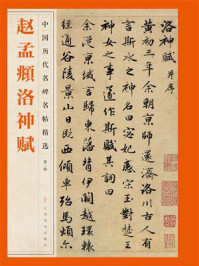 赵孟頫洛神赋
中国历代名碑名帖精选
洛神賦 并序
黄初三年余朝京師還濟洛川古人有
言斯水之神名曰宓妃感宋玉對楚王
神女之事遂作斯賦其詞曰
余從京域言歸東藩背伊闕越轘轅
經通谷陵景山日既西傾車殆馬煩尔